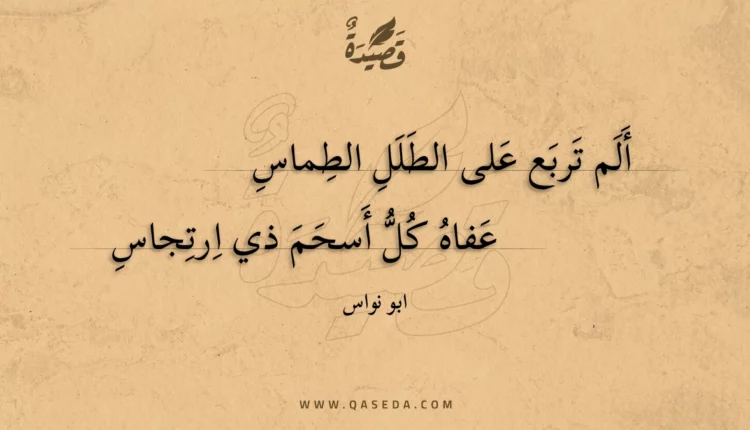 قَصِيْدَةٌ
أَلَم تَربَع عَلى الطَلَلِ الطِماسِ
عَفاهُ كُلُّ أَسحَمَ ذي اِرتِجاسِ
ابو نواس
WWW.QASEDA.COM